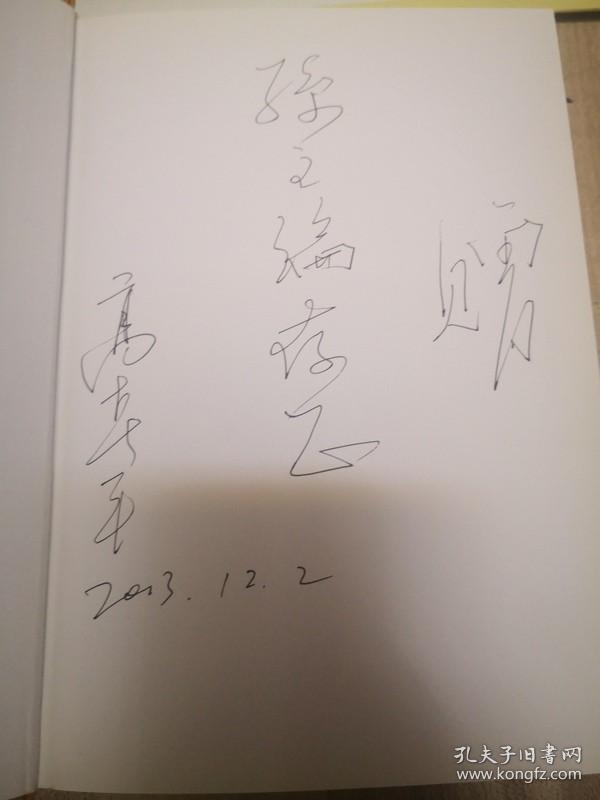 赠
孫主编存正
高平
2013.12.2
孔夫子旧书网
www.kongfz.com